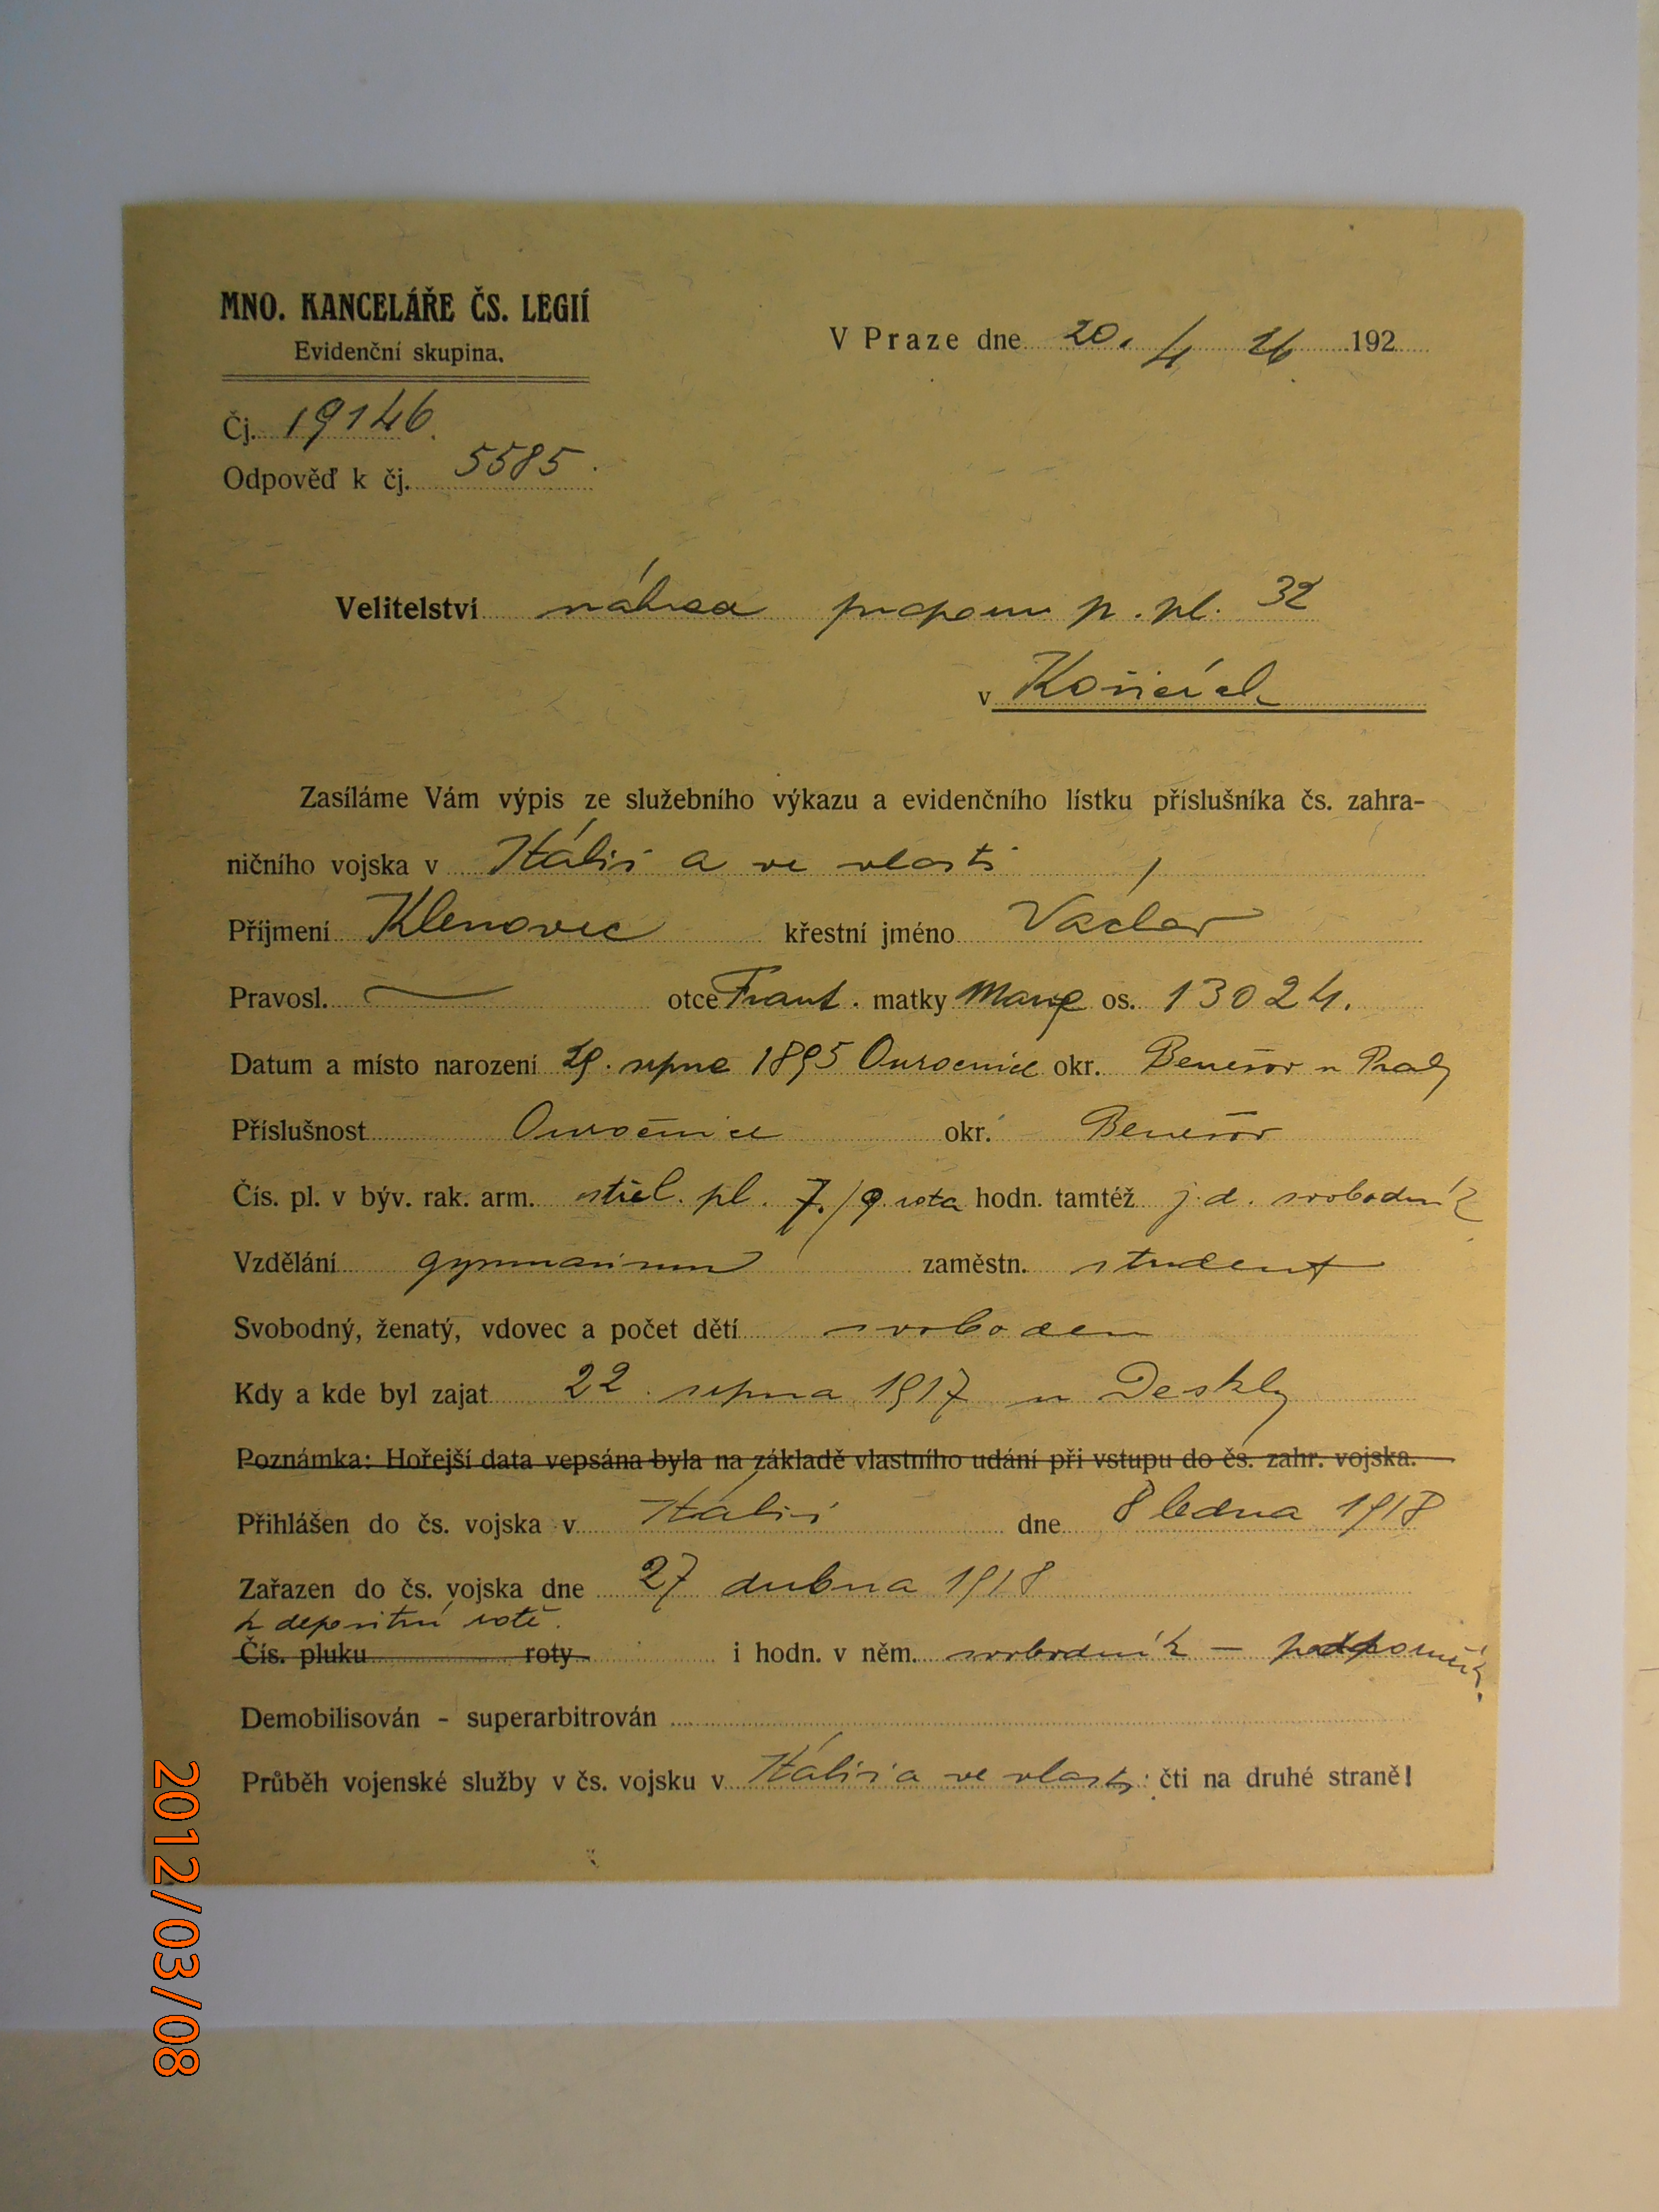 MNO. KANCELÁŘE ČS. LEGIÍ
Evidenční skupina.
V Praze dne 20. 4 26 192
Čj. 19146.
Odpověď k čj. 5585.
Velitelství náhrad praporu p. pl. 32
v Košicích
Zasíláme Vám výpis ze služebního výkazu a evidenčního lístku příslušníka čs. zahra-
ničního vojska v Itálii a ve vlasti
Příjmení Klenovec křestní jméno Václav
Pravosl. — otce Frant. matky Marie os. 13024.
Datum a místo narození srpna 1895 okr. Benešov u Prahy
Příslušnost okr. Benešov
Čís. pl. v býv. rak. arm. střel. pl. 7./9. rota hodn. tamtéž j. d. svobodník
Vzdělání gymnasium zaměstn. student
Svobodný, ženatý, vdovec a počet dětí svoboden
Kdy a kde byl zajat 22. srpna 1917 u Deskly
Poznámka: Hořejší data vepsána byla na základě vlastního udání při vstupu do čs. zahr. vojska.
Přihlášen do čs. vojska v Itálii dne 8 ledna 1918
Zařazen do čs. vojska dne 27 dubna 1918
k depositní rotě.
Čís. pluku roty i hodn. v něm. svobodník — podporučík.
Demobilisován - superarbitrován
Průběh vojenské služby v čs. vojsku v Itálii a ve vlasti čti na druhé straně!
2012/03/08